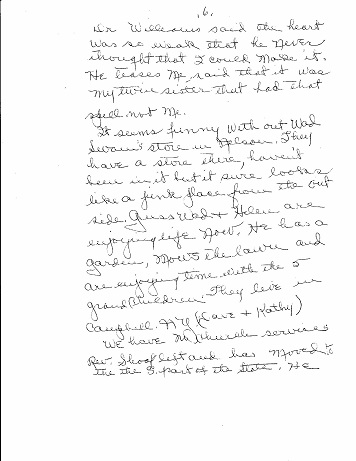 .6.
Dr Williams said the heart
was so weak that he never
thought that I could make it.
He teases me, said that it was
my twin sister that had that
spell, not me.
It seems funny with out Wad
Swain's store in Nelson. They
have a store there, haven't
been in it but it sure looks
like a junk place from the out
side. Guess Wad + Helen are
enjoying life now. He has a
garden, mows the lawn and
are enjoying time with the 5
grandchildren. They live in
Campbell. N.Y (Dave + Kathy)
We have no church services
Rev. Shoof left and has moved to
the the S. part of the State. He